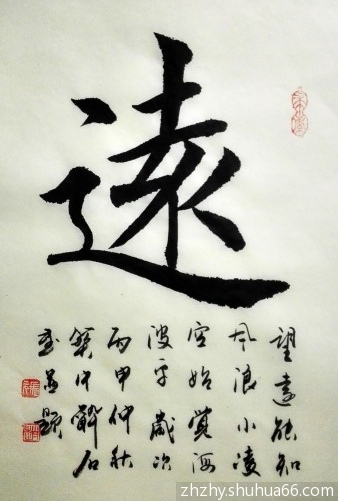 遠
望遠能知
風浪小凌
空始覺海
波平歲次
丙申仲秋
醉石
並題
zhzhy.shuhua66.com